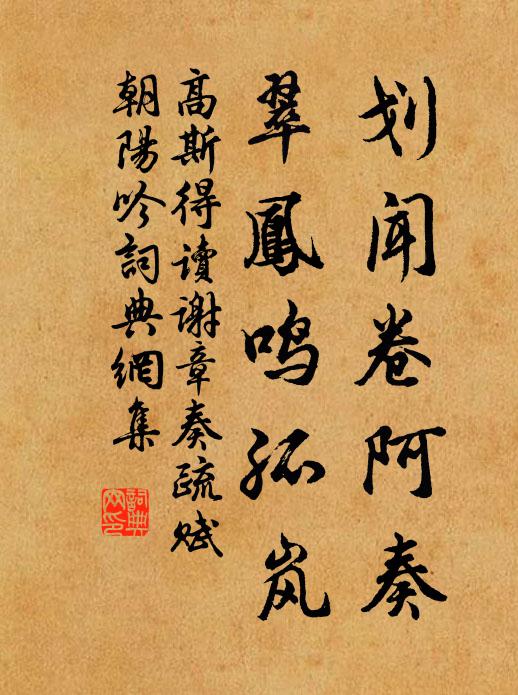 划闻卷阿奏
翠鳳鸣孤岚
高斯得读谢章奏疏赋
朝陽吟詞典網集
詞典
网印